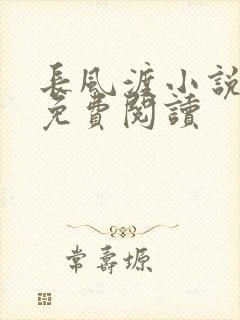 長風渡小說
免費閱讀
常壽塬